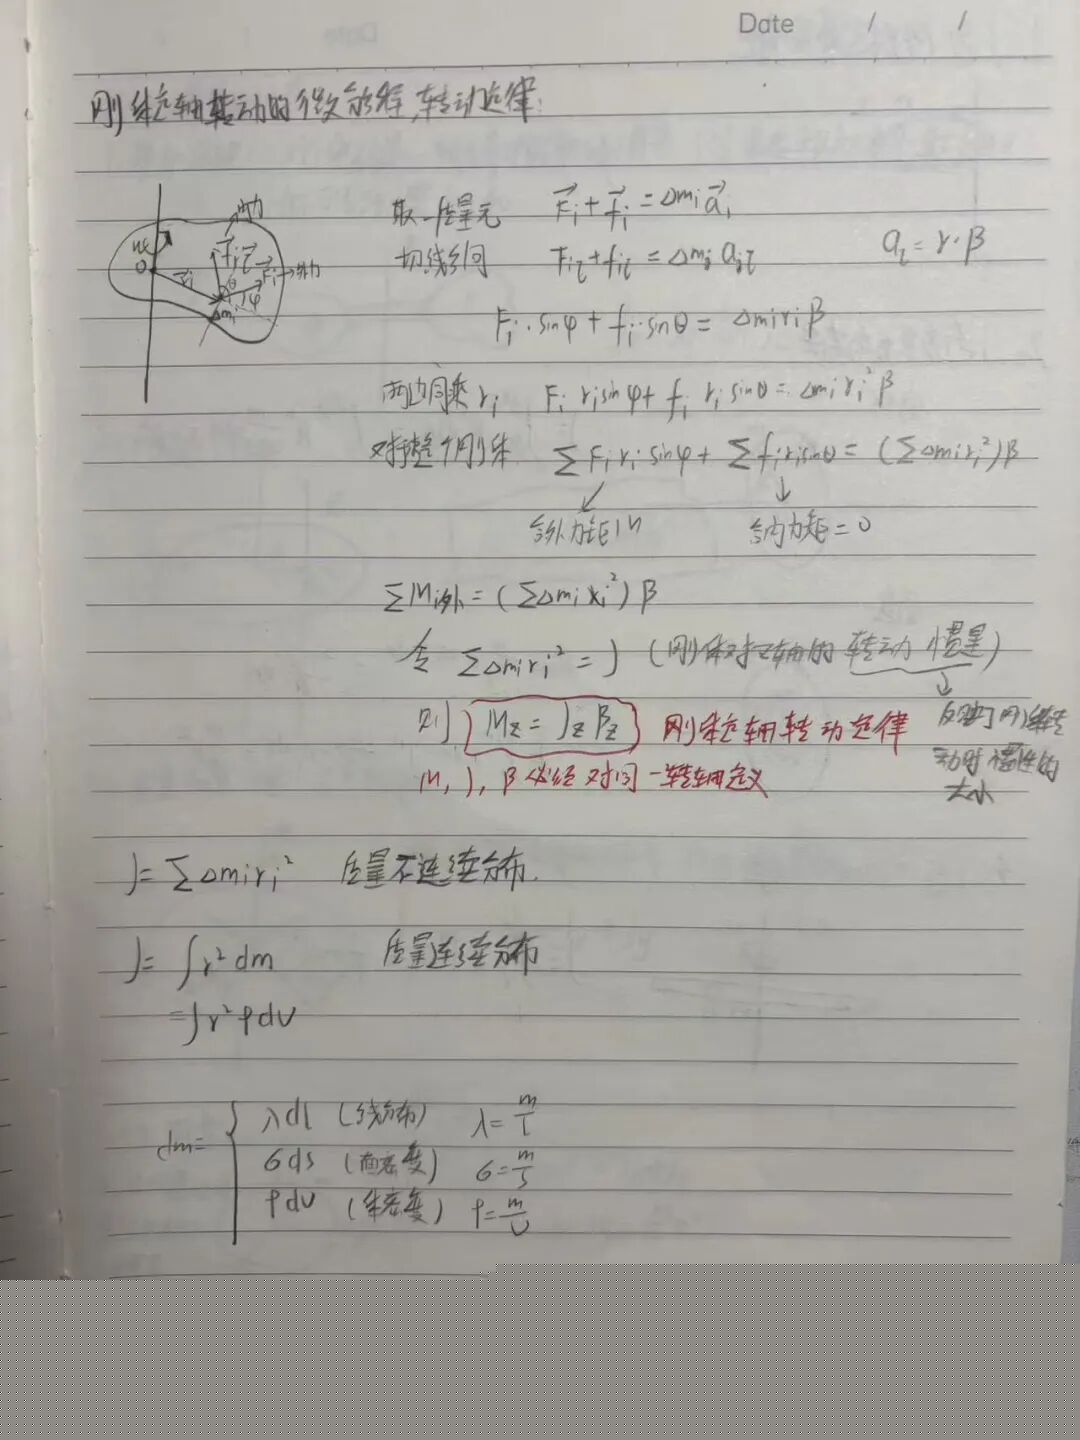 Date / /
刚体定轴转动的微分方程,转动定律:
内力
外力
取一质量元 F⃗i + f⃗i = Δmi a⃗i
切线方向 Fiτ + fiτ = Δmi aiτ
aτ = r·β
Fi·sinφ + fi·sinθ = Δmi ri β
两边同乘 ri Fi ri sinφ + fi ri sinθ = Δmi ri² β
对于整个刚体 ∑Fi ri·sinφ + ∑fi ri sinθ = (∑Δmi ri²)β
合外力矩M 合内力矩=0
∑Mi外 = (∑Δmi ri²)β
令 ∑Δmi ri² = J (刚体对z轴的转动惯量)
则 Mz = Jz βz 刚体定轴转动定律
反映了刚体转
动时惯性的
大小
M, J, β 必须对同一转轴定义
J = ∑Δmi ri² 质量不连续分布.
J = ∫r² dm 质量连续分布
= ∫r² ρdV
dm =
λdl (线分布) λ = m/l
σds (面密度) σ = m/s
ρdV (体密度) ρ = m/V